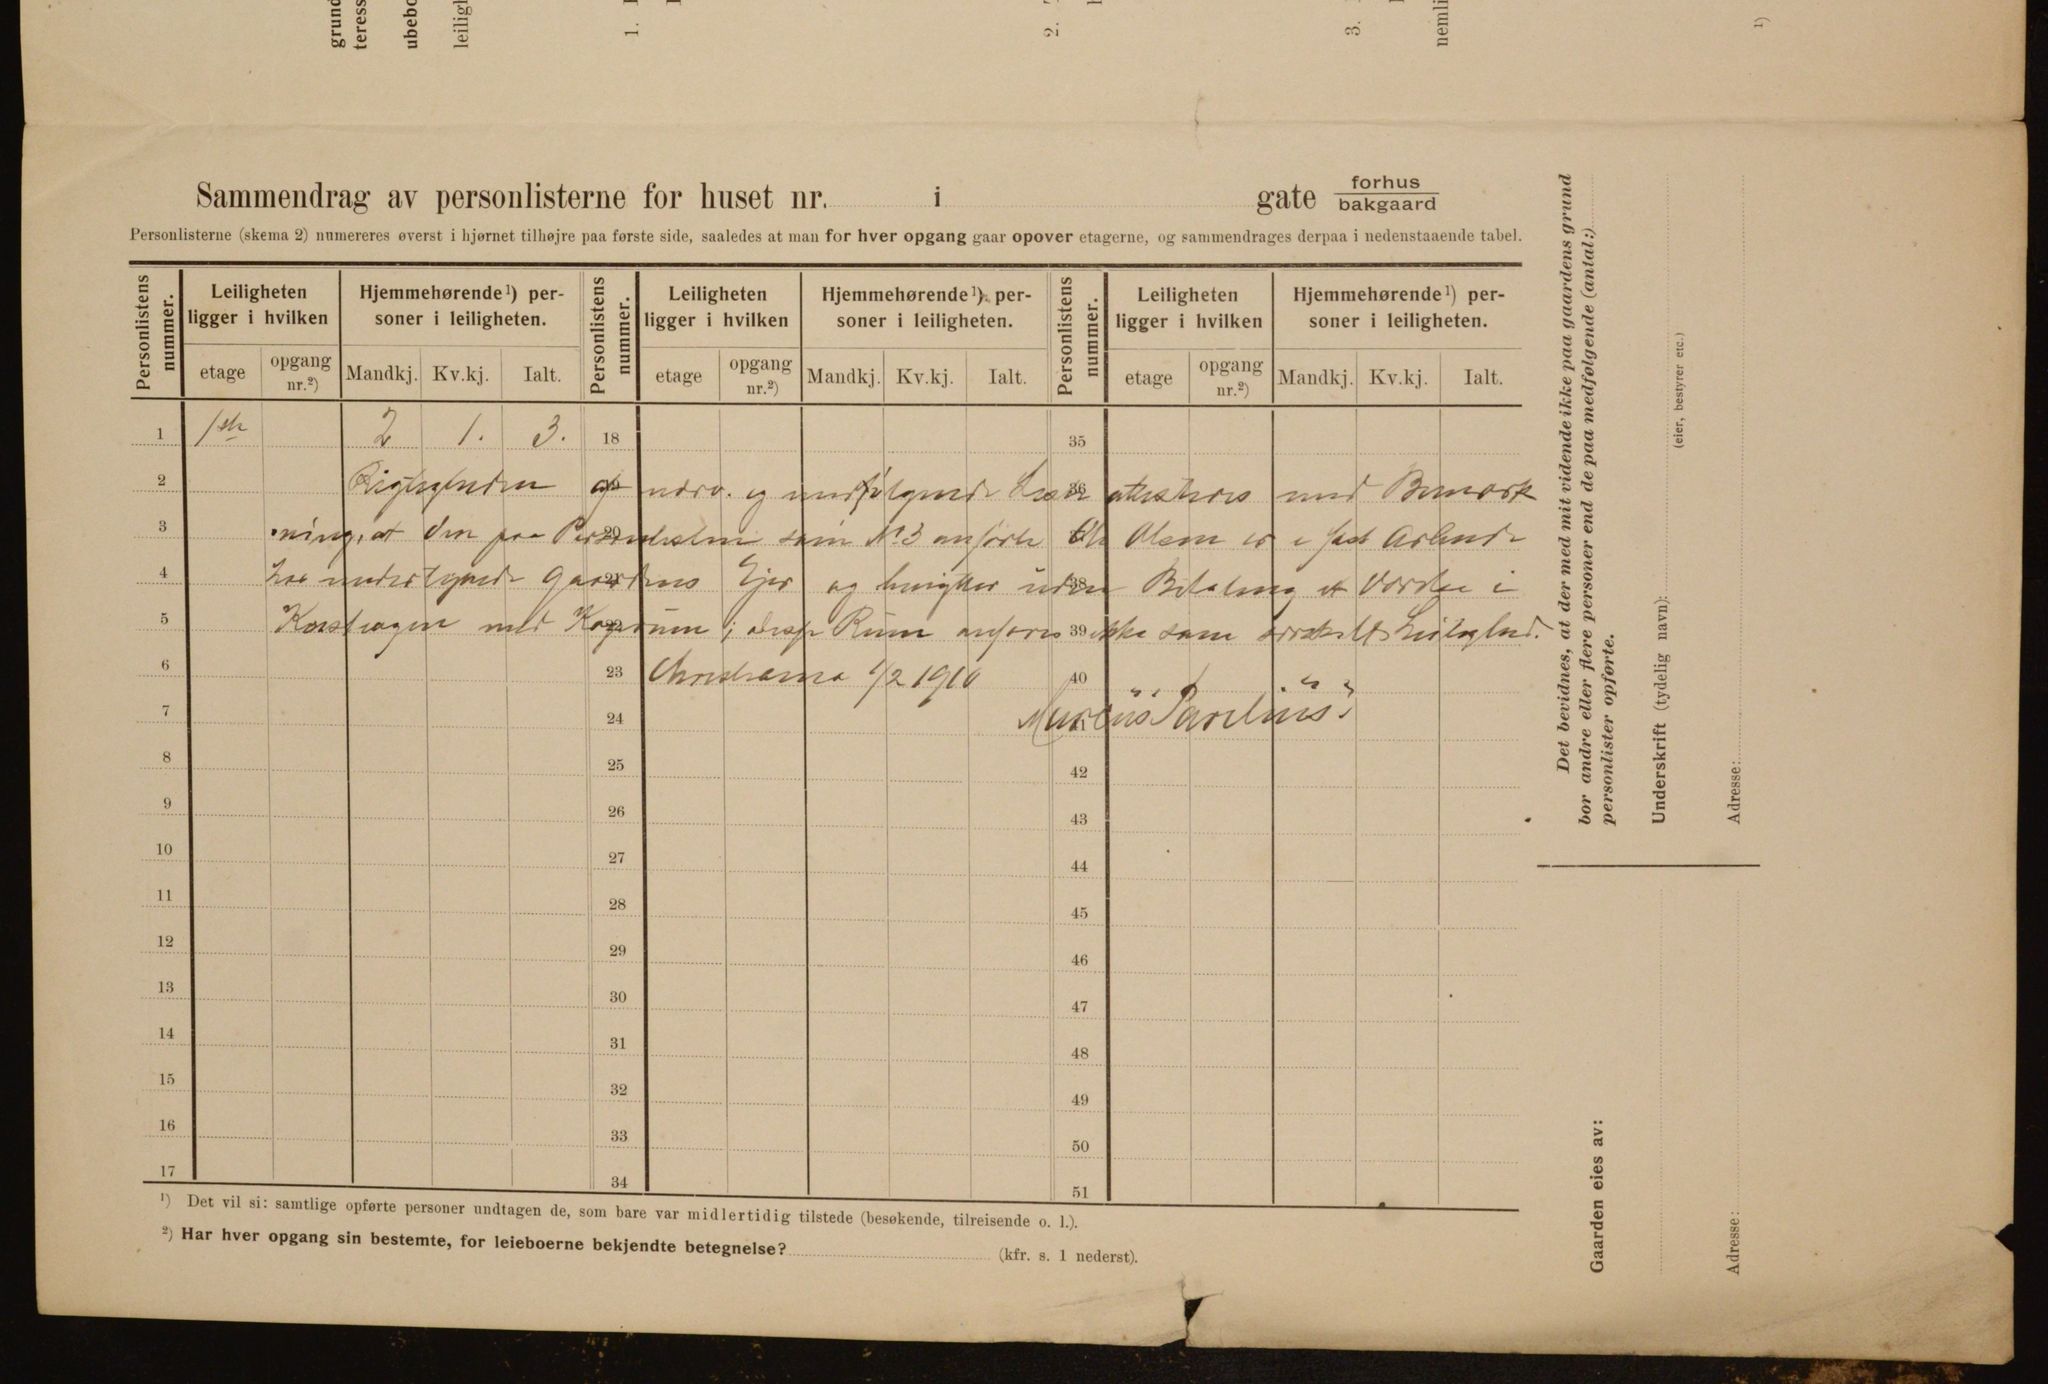 grund
teress
ubebo
leiligh
1.
2.
3.
nemli
¹)
Sammendrag av personlisterne for huset nr. i gate forhus
bakgaard
Personlisterne (skema 2) numereres øverst i hjørnet tilhøjre paa første side, saaledes at man for hver opgang gaar opover etagerne, og sammendrages derpaa i nedenstaaende tabel.
Personlistens nummer. Leiligheten ligger i hvilken Hjemmehørende¹) personer i leiligheten. Personlistens nummer. Leiligheten ligger i hvilken Hjemmehørende¹) personer i leiligheten. Personlistens nummer. Leiligheten ligger i hvilken Hjemmehørende¹) personer i leiligheten.
etage opgang nr.²) Mandkj. Kv.kj. Ialt. etage opgang nr.²) Mandkj. Kv.kj. Ialt. etage opgang nr.²) Mandkj. Kv.kj. Ialt.
1 1ste 2 1. 3. 18 35
2 Rigtigheden af nærv. og medfølgende Liste 36 attesteres med Bemærk
3 ning, at den paa Personlisten som No 3 anførte Ole Olsen er i fast Arbeide
4 hos undertegnede Gaardens Ejer og benytter uden 38 Betaling et Værelse i
5 med i Rum anføres 39 ikke som særskilt Leilighed.
6 23 Christiania 1/2 1910 40
7 24 Marius
8 25 42
9 26 43
10 27 44
11 28 45
12 29 46
13 30 47
14 31 48
15 32 49
16 33 50
17 34 51
¹) Det vil si: samtlige opførte personer undtagen de, som bare var midlertidig tilstede (besøkende, tilreisende o. l.).
²) Har hver opgang sin bestemte, for leieboerne bekjendte betegnelse? (kfr. s. 1 nederst).
Det bevidnes, at der med mit vidende ikke paa gaardens grund
bor andre eller flere personer end de paa medfølgende (antal:)
personlister opførte.
Underskrift (tydelig navn):
(eier, bestyrer etc.)
Adresse:
Gaarden eies av:
Adresse: